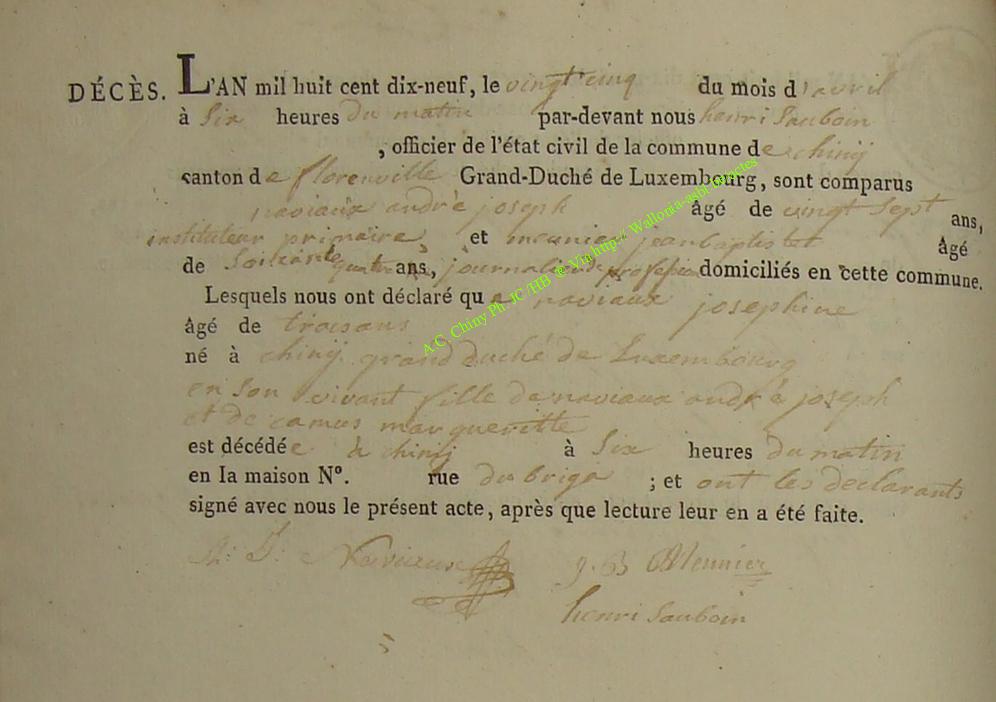 DÉCÈS. L'AN mil huit cent dix-neuf, le vingt cinq du mois d'avril
à Six heures du matin par-devant nous henri Sauboin
, officier de l'état civil de la commune de chinij
canton de florenville Grand-Duché de Luxembourg, sont comparus
naviaux andré joseph âgé de vingt sept ans,
instituteur primaire, et meunier jean baptiste âgé
de Soixante quatre ans, journalier de profession domiciliés en cette commune.
Lesquels nous ont déclaré que naviaux josephine
âgé de trois ans
né à chinij grand duché de Luxembourg
en Son vivant fille de naviaux andré joseph
et de camus margueritte
est décédée à chinij à Six heures du matin
en la maison N°. rue du briga ; et ont les declarants
signé avec nous le présent acte, après que lecture leur en a été faite.
A: J: Naviaux j. B Meunier
henri Sauboin
A C. Chiny Ph. JC /HB @ Via http:// Wallonia-asbl-indactes